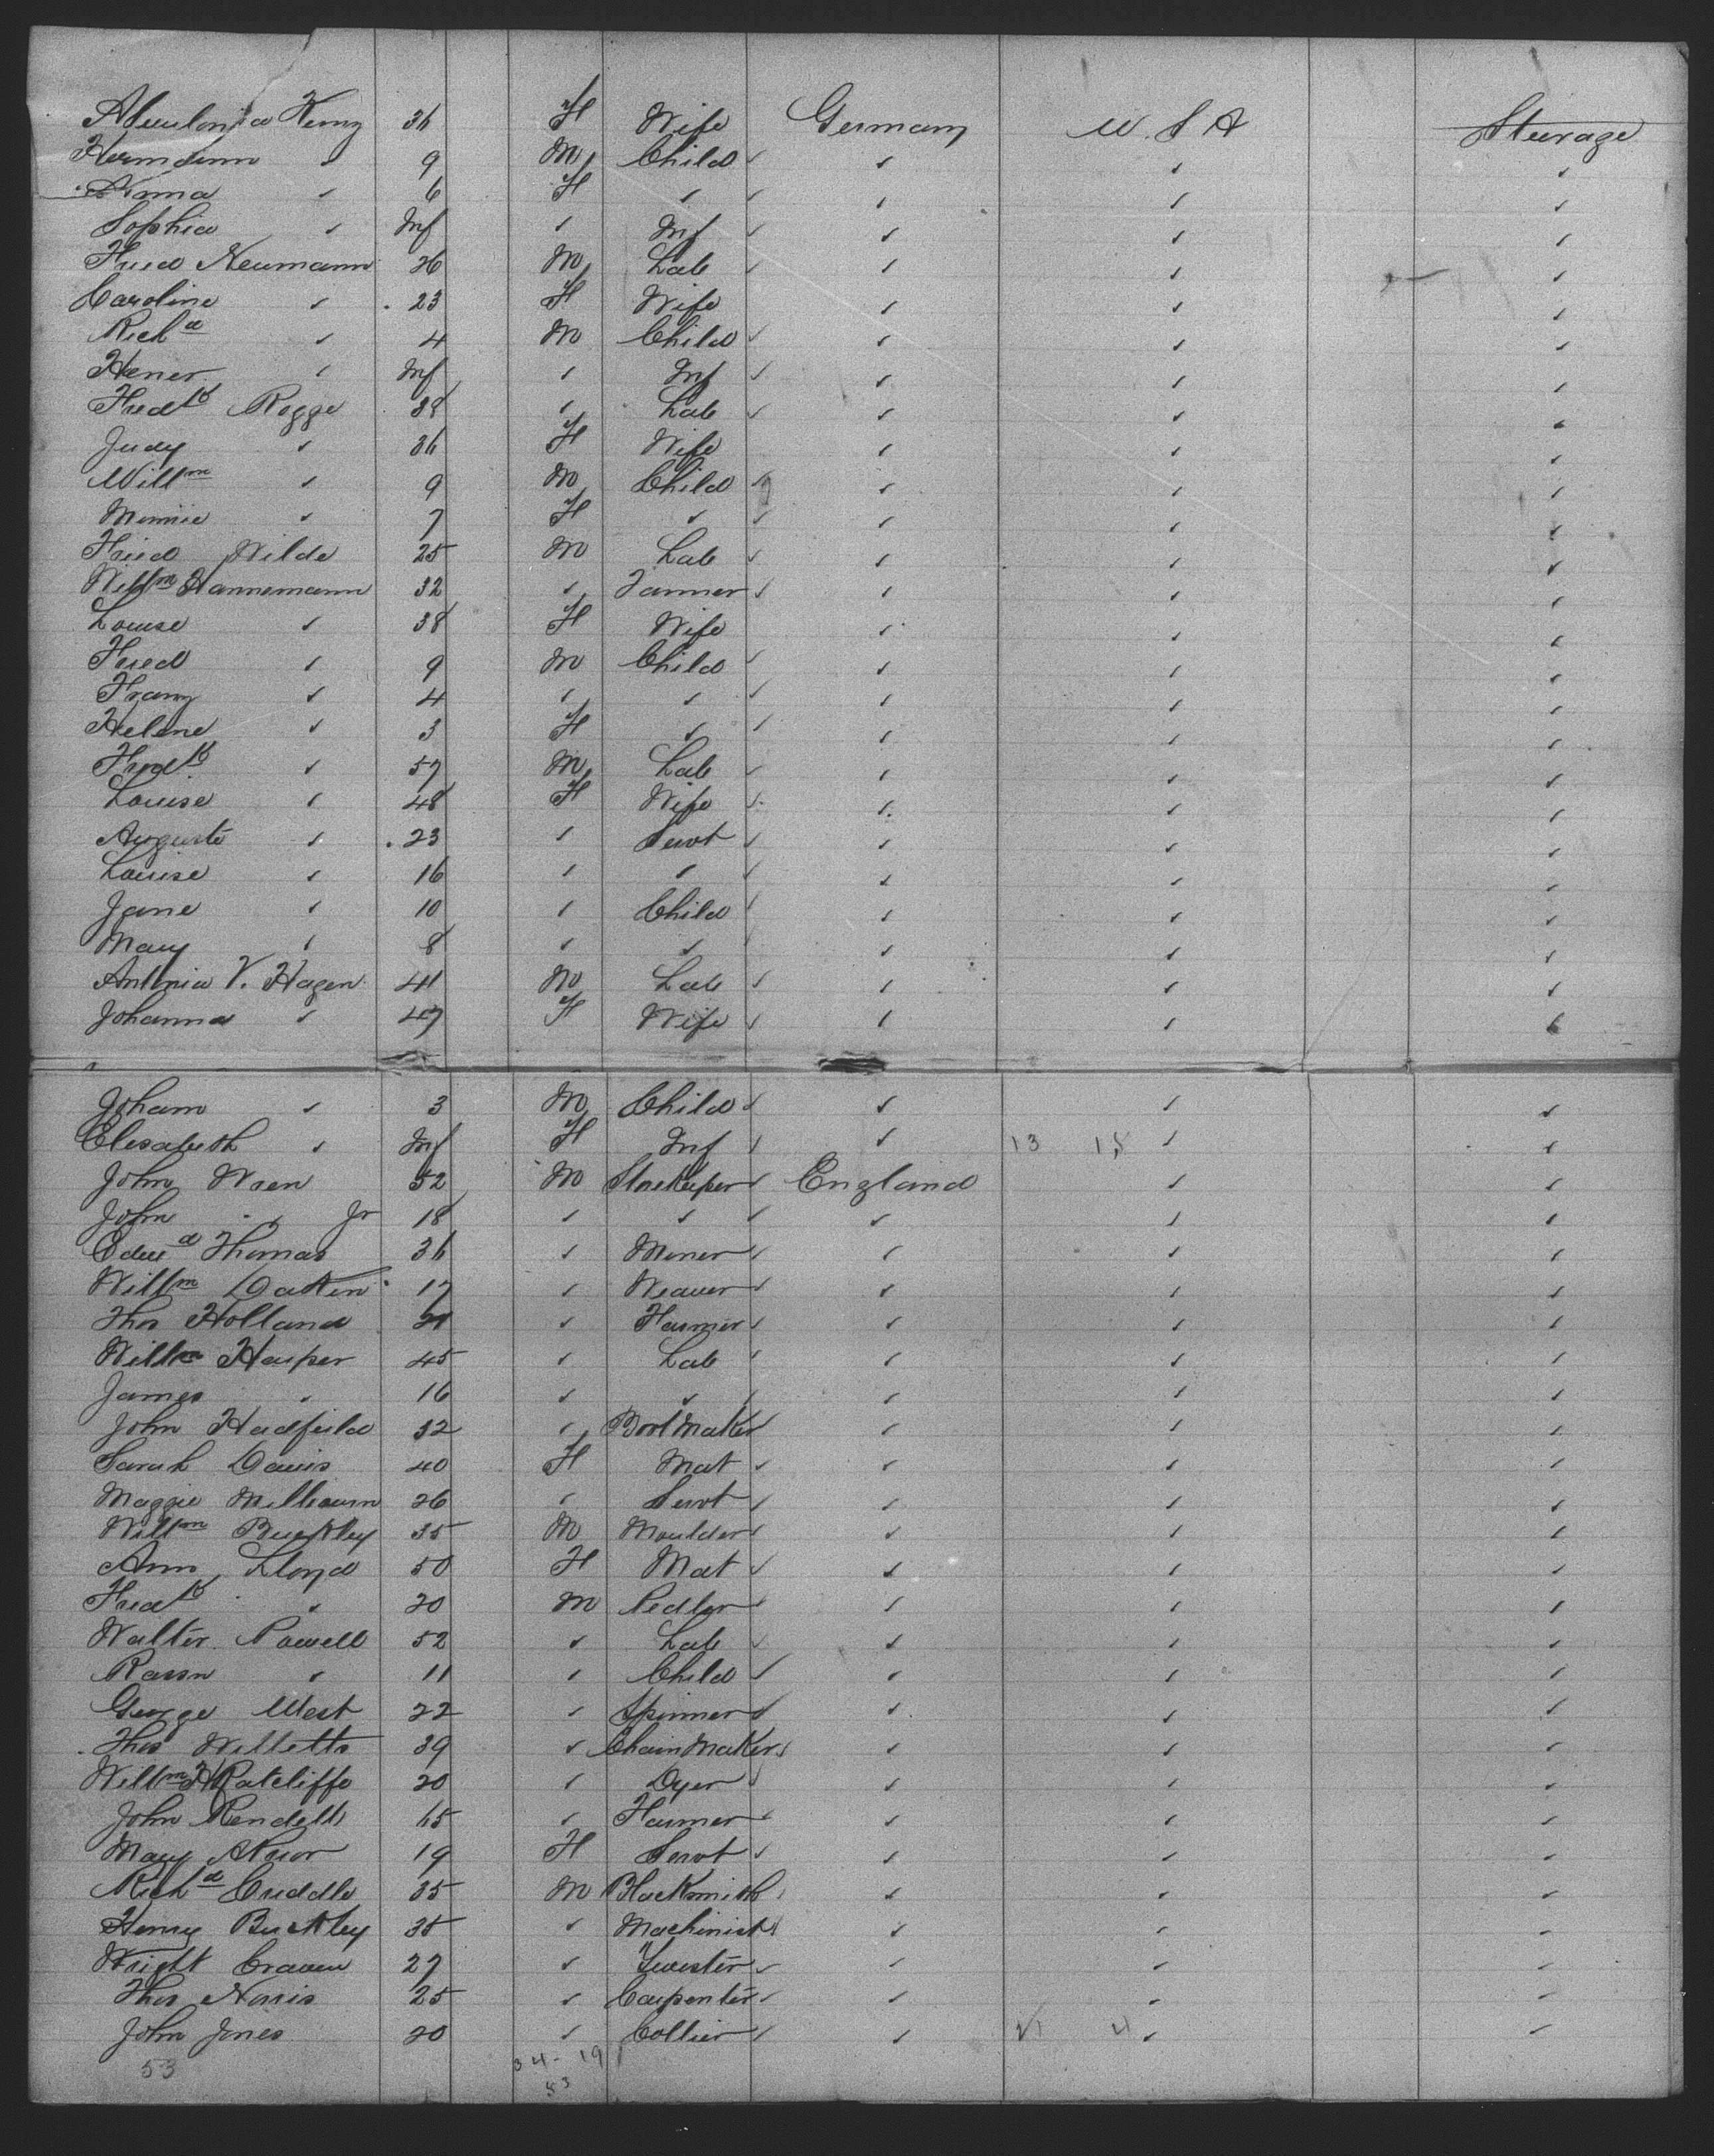 Kunz 36 F Wife Germany U. S A Steerage
Hermann " 9 M Child " " "
Anna " 6 F " " " "
Sophia " Inf " Inf " " "
Fried Neumann 26 M Lab " " "
Caroline " 23 F Wife " " "
Rich^d " 4 M Child " " "
" Inf " Inf " " "
Fredk Rogge 38 " Lab " " "
Judy " 36 F Wife " " "
Will^m " 9 M Child " " "
Minnie " 7 F " " " "
Fried Wilde 25 M Lab " " "
Will^m Hannemann 32 " Farmer " " "
Louise " 38 F Wife " " "
Fried " 9 M Child " " "
Franz " 4 " " " " "
Helene " 3 F " " " "
Fredk " 57 M Lab " " "
Louise " 48 F Wife " " "
Auguste " 23 " Servt " " "
Louise " 16 " " " " "
Jane " 10 " Child " " "
Mary " 8 " " " " "
Antonia V. Hagen 41 M Lab " " "
Johanna " 47 F Wife " " "
Johann " 3 M Child " " "
Elisabeth " Inf F Inf " 13 18 " "
John Wren 52 M Storekeeper England " "
John " Jr 18 " " " " "
Edw^d Thomas 36 " Miner " " "
Will^m Dakin 17 " Weaver " " "
Thos Holland 21 " Farmer " " "
Will^m Harper 45 " Lab " " "
James " 16 " " " " "
John Hadfield 32 " Boot Maker " " "
Sarah Davis 40 F Mat " " "
Maggie Millbourn 26 " Servt " " "
Will^m Buckley 35 M Moulder " " "
Ann Lloyd 50 F Mat " " "
Fredk " 20 M Pedler " " "
Walter Powell 52 " Lab " " "
" 11 " Child " " "
George West 22 " Spinner " " "
Thos Willetts 39 " Chain Maker " " "
Will^m H Ratcliffe 20 " Dyer " " "
John Rendells 65 " Farmer " " "
Mary 19 F Servt " " "
Rich^d Criddle 35 M Blacksmith " " "
Henry Buckley 35 " Machinist " " "
Wright Craven 27 " Twister " " "
Thos Norris 25 " Carpenter " " "
John Jones 20 " Collier " 21 4 " "
53 34 - 19
53